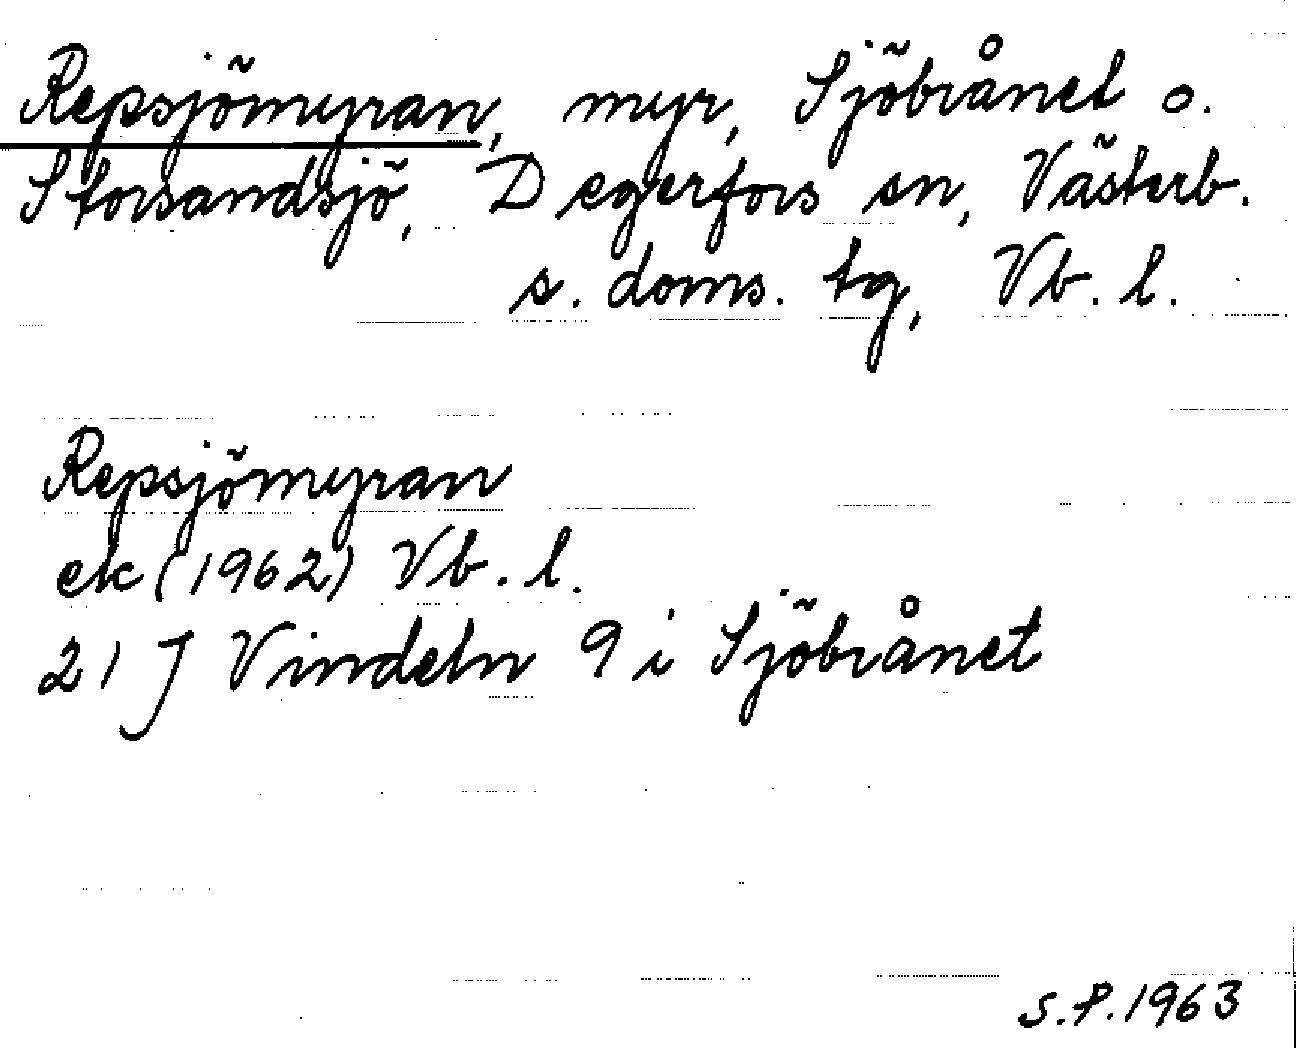 Repsjömyran, myr, Sjöbrånet o.
Storsandsjö, Degerfors sn, Västerb.
s. doms. tg, Vb. l.
Repsjömyran
ek (1962) Vb. l.
21 J Vindeln 9 i Sjöbrånet
S.P. 1963